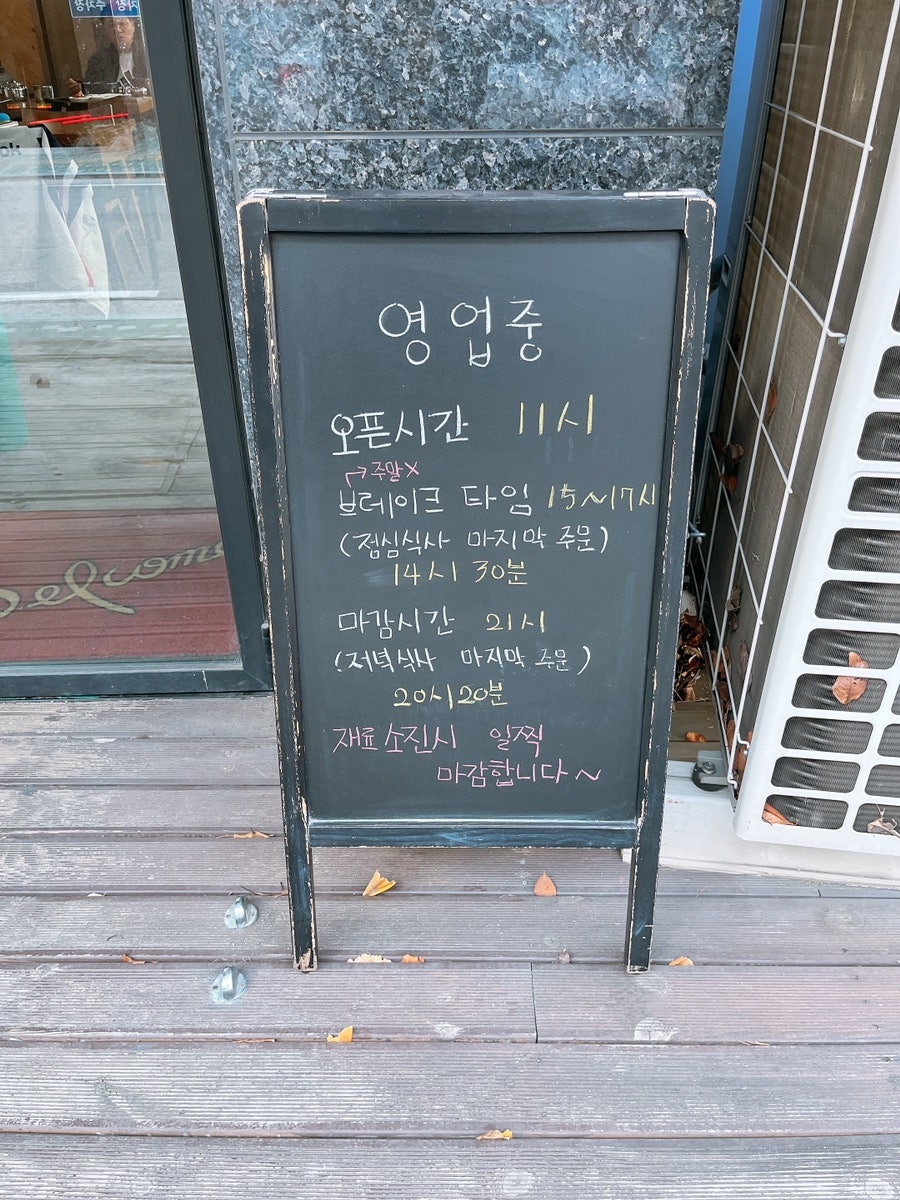 영업중
오픈시간 11시
→주말X
브레이크 타임 15~17시
(점심식사 마지막 주문)
14시 30분
마감시간 21시
(저녁식사 마지막 주문)
20시20분
재료 소진시 일찍
마감합니다~
welcome